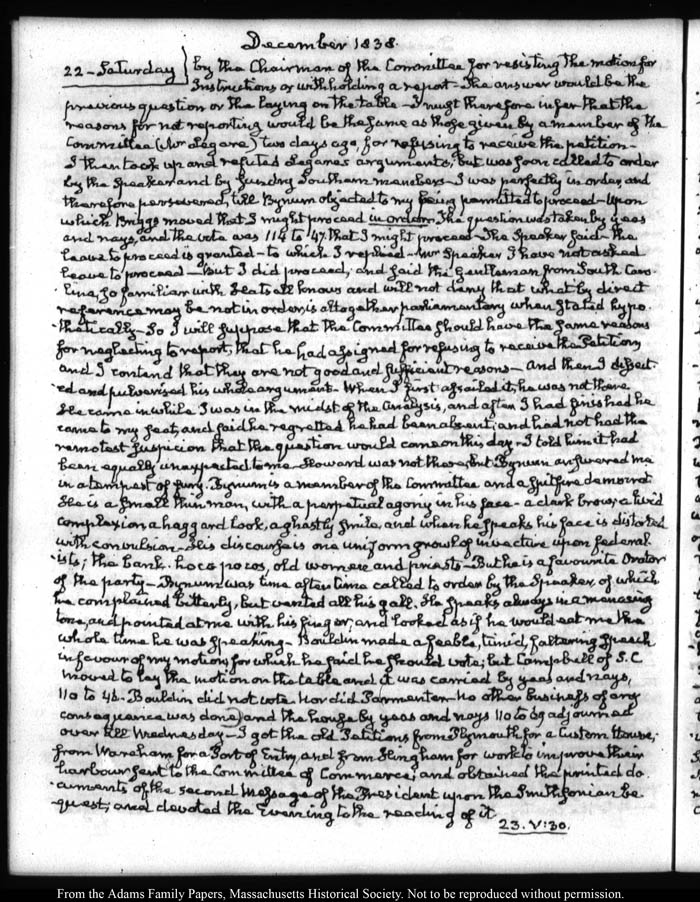 December 1838.
22 - Saturday by the Chairman of the Committee for resisting the motion for
Instructions or withholding a report - The answer would be the
previous question or the laying on the table - I must therefore infer that the
reasons for not reporting would be the same as those given by a member of the
Committee (Mr Legare) two days ago, for refusing to receive the petition -
I then took up and refuted Legare's arguments, but was soon called to order
by the Speaker and by sundry Southern members - I was perfectly in order, and
therefore persevered, till Bynum objected to my being permitted to proceed - Upon
which Briggs moved that I might proceed in order. The question was taken by yeas
and nays, and the vote was 114 to 47 that I might proceed - The Speaker said - the
leave to proceed is granted - to which I replied - Mr Speaker I have not asked
leave to proceed - But I did proceed, and said the Gentleman from South Caro-
-lina, so familiar with Sleats all knows and will not deny that what by direct
reference may be not in order, is altogether parliamentary when stated hypo-
-thetically - So I will suppose that the Committee should have the same reasons
for neglecting to report, that he had assigned for refusing to receive the Petition,
and I contend that they are not good and sufficient reasons - and then I dissect-
-ed and pulverised his whole argument - When I first assailed it, he was not there
He came in while I was in the midst of the analysis, and after I had finished he
came to my seat, and said he regretted he had been absent; and had not had the
remotest suspicion that the question would come on this day - I told him it had
been equally unexpected to me - Howard was not there, but Bynum answered me
in a tempest of fury. Bynum is a member of the Committee and a spitfire democrat
He is a small thin man, with a perpetual agony in his face - a dark brow, a livid
complexion a haggard look, a ghastly smile, and when he speaks his face is distorted
with convulsion - His discourse is one uniform growl of invective upon federal-
-ists; the bank. hoco pocos, old women and priests - But he is a favourite Orator
of the party - Bynum was time after time called to order by the Speaker, of which
he complained bitterly, but vented all his gall. He speaks always in a menacing
tone, and pointed at me with his finger, and looked as if he would eat me the
whole time he was speaking - Bouldin made a feeble, timid, faltering speech
in favour of my motion, for which he said he should vote; but Campbell of S. C
moved to lay the motion on the table and it was carried by yeas and nays,
110 to 46 - Bouldin did not vote nor did Parmenter - No other business of any
consequence was done, and the house by yeas and nays 110 to 69 adjourned
over till Wednesday - I got the old Petitions from Plymouth for a Custom House,
from Wareham for a Port of Entry, and from Hingham for work to improve their
harbour sent to the Committee of Commerce; and obtained the printed do-
-cuments of the second Message of the President upon the Smithsonian be-
quest; and devoted the Evening to the reading of it
23. V:30.
From the Adams Family Papers, Massachusetts Historical Society. Not to be reproduced without permission.